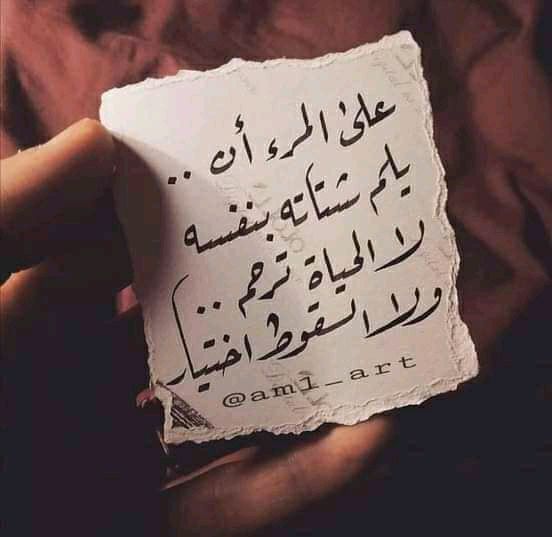 على المرء أن ..
يلم شتاته بنفسه
لا الحياة ترحم ..
ولا السقوط اختيار
@am1_art